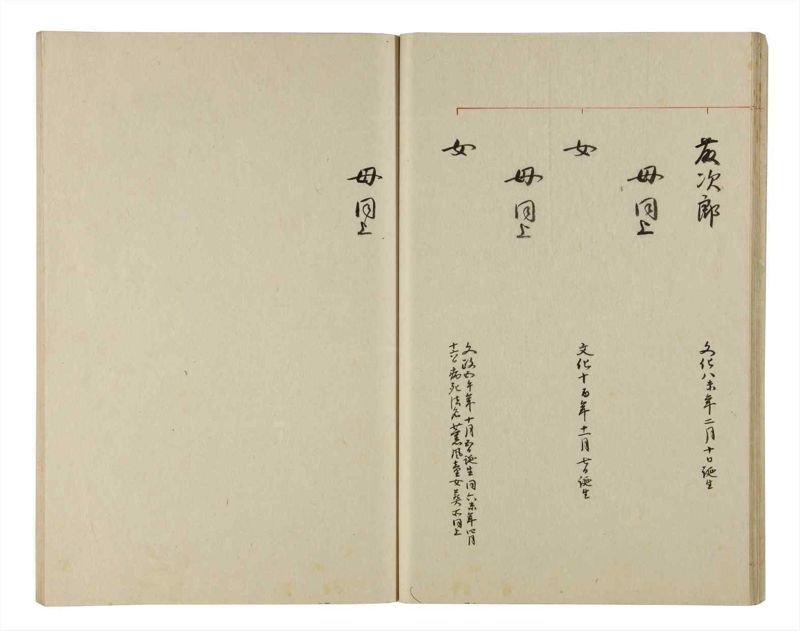 茂次郎
文化八未年二月十日誕生
母同上
女
文化十酉年十一月廿日誕生
母同上
女
文政五午年十月誕生同六未年四月
十六日病死法名薫風童女葬所同上
母同上